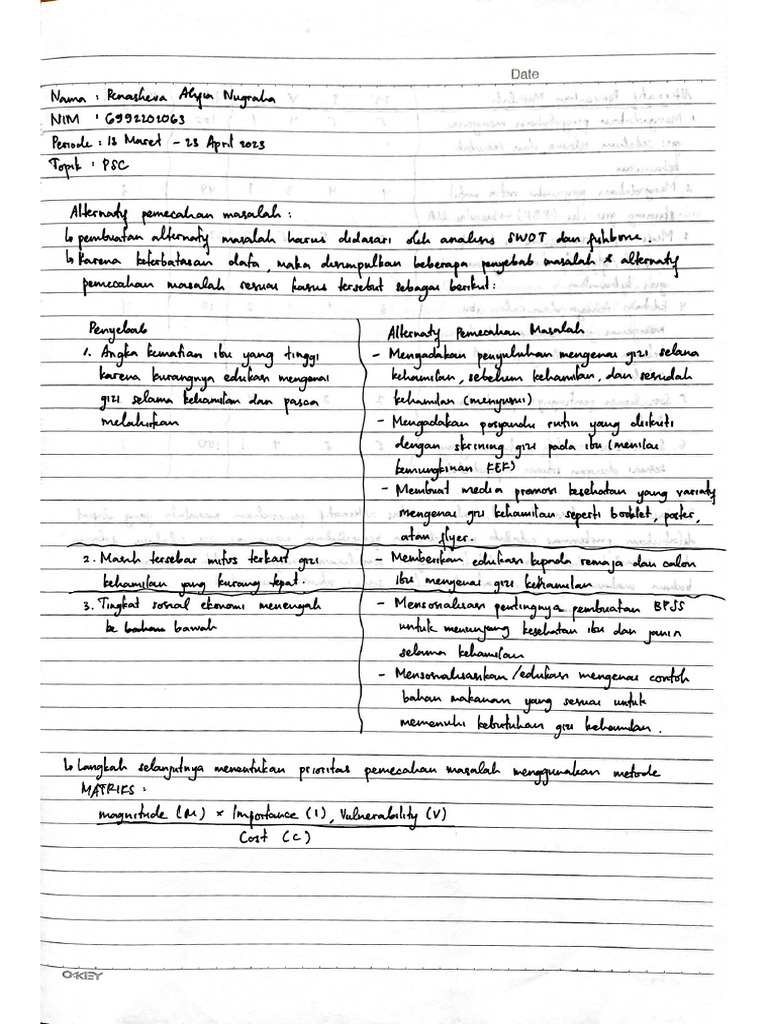 Date
Nama : Penasheva Aliyva Nugraha
NIM : 6992202063
Periode : 13 Maret - 23 April 2023
Topik : PSC
Alternatif pemecahan masalah :
↳ pembuatan alternatif masalah harus didasari oleh analisis SWOT dan fishbone.
↳ Karena keterbatasan data, maka disimpulkan beberapa penyebab masalah & alternatif
pemecahan masalah sesuai kasus tersebut sebagai berikut :
Penyebab
1. Angka kematian ibu yang tinggi
karena kurangnya edukasi mengenai
gizi selama kehamilan dan pasca
melahirkan
Alternatif Pemecahan Masalah
- Mengadakan penyuluhan mengenai gizi selama
kehamilan, sebelum kehamilan, dan sesudah
kehamilan (menyusui)
- Mengadakan posyandu rutin yang disertai
dengan skrining gizi pada ibu (menilai
kemungkinan KEK)
- Membuat media promosi kesehatan yang variatif
mengenai gizi kehamilan seperti booklet, poster,
atau flyer.
2. Masih tersebar mitos terkait gizi
kehamilan yang kurang tepat.
- Memberikan edukasi kepada remaja dan calon
ibu mengenai gizi kehamilan
3. Tingkat sosial ekonomi menengah
ke bawah
- Mensosialisasikan pentingnya pembuatan BPJS
untuk menunjang kesehatan ibu dan janin
selama kehamilan
- Mensosialisasikan/edukasi mengenai contoh
bahan makanan yang sesuai untuk
memenuhi kebutuhan gizi kehamilan.
↳ Langkah selanjutnya menentukan prioritas pemecahan masalah menggunakan metode
MATRIKS :
magnitude (M) × Importance (I), Vulnerability (V)
Cost (C)
O-KEY